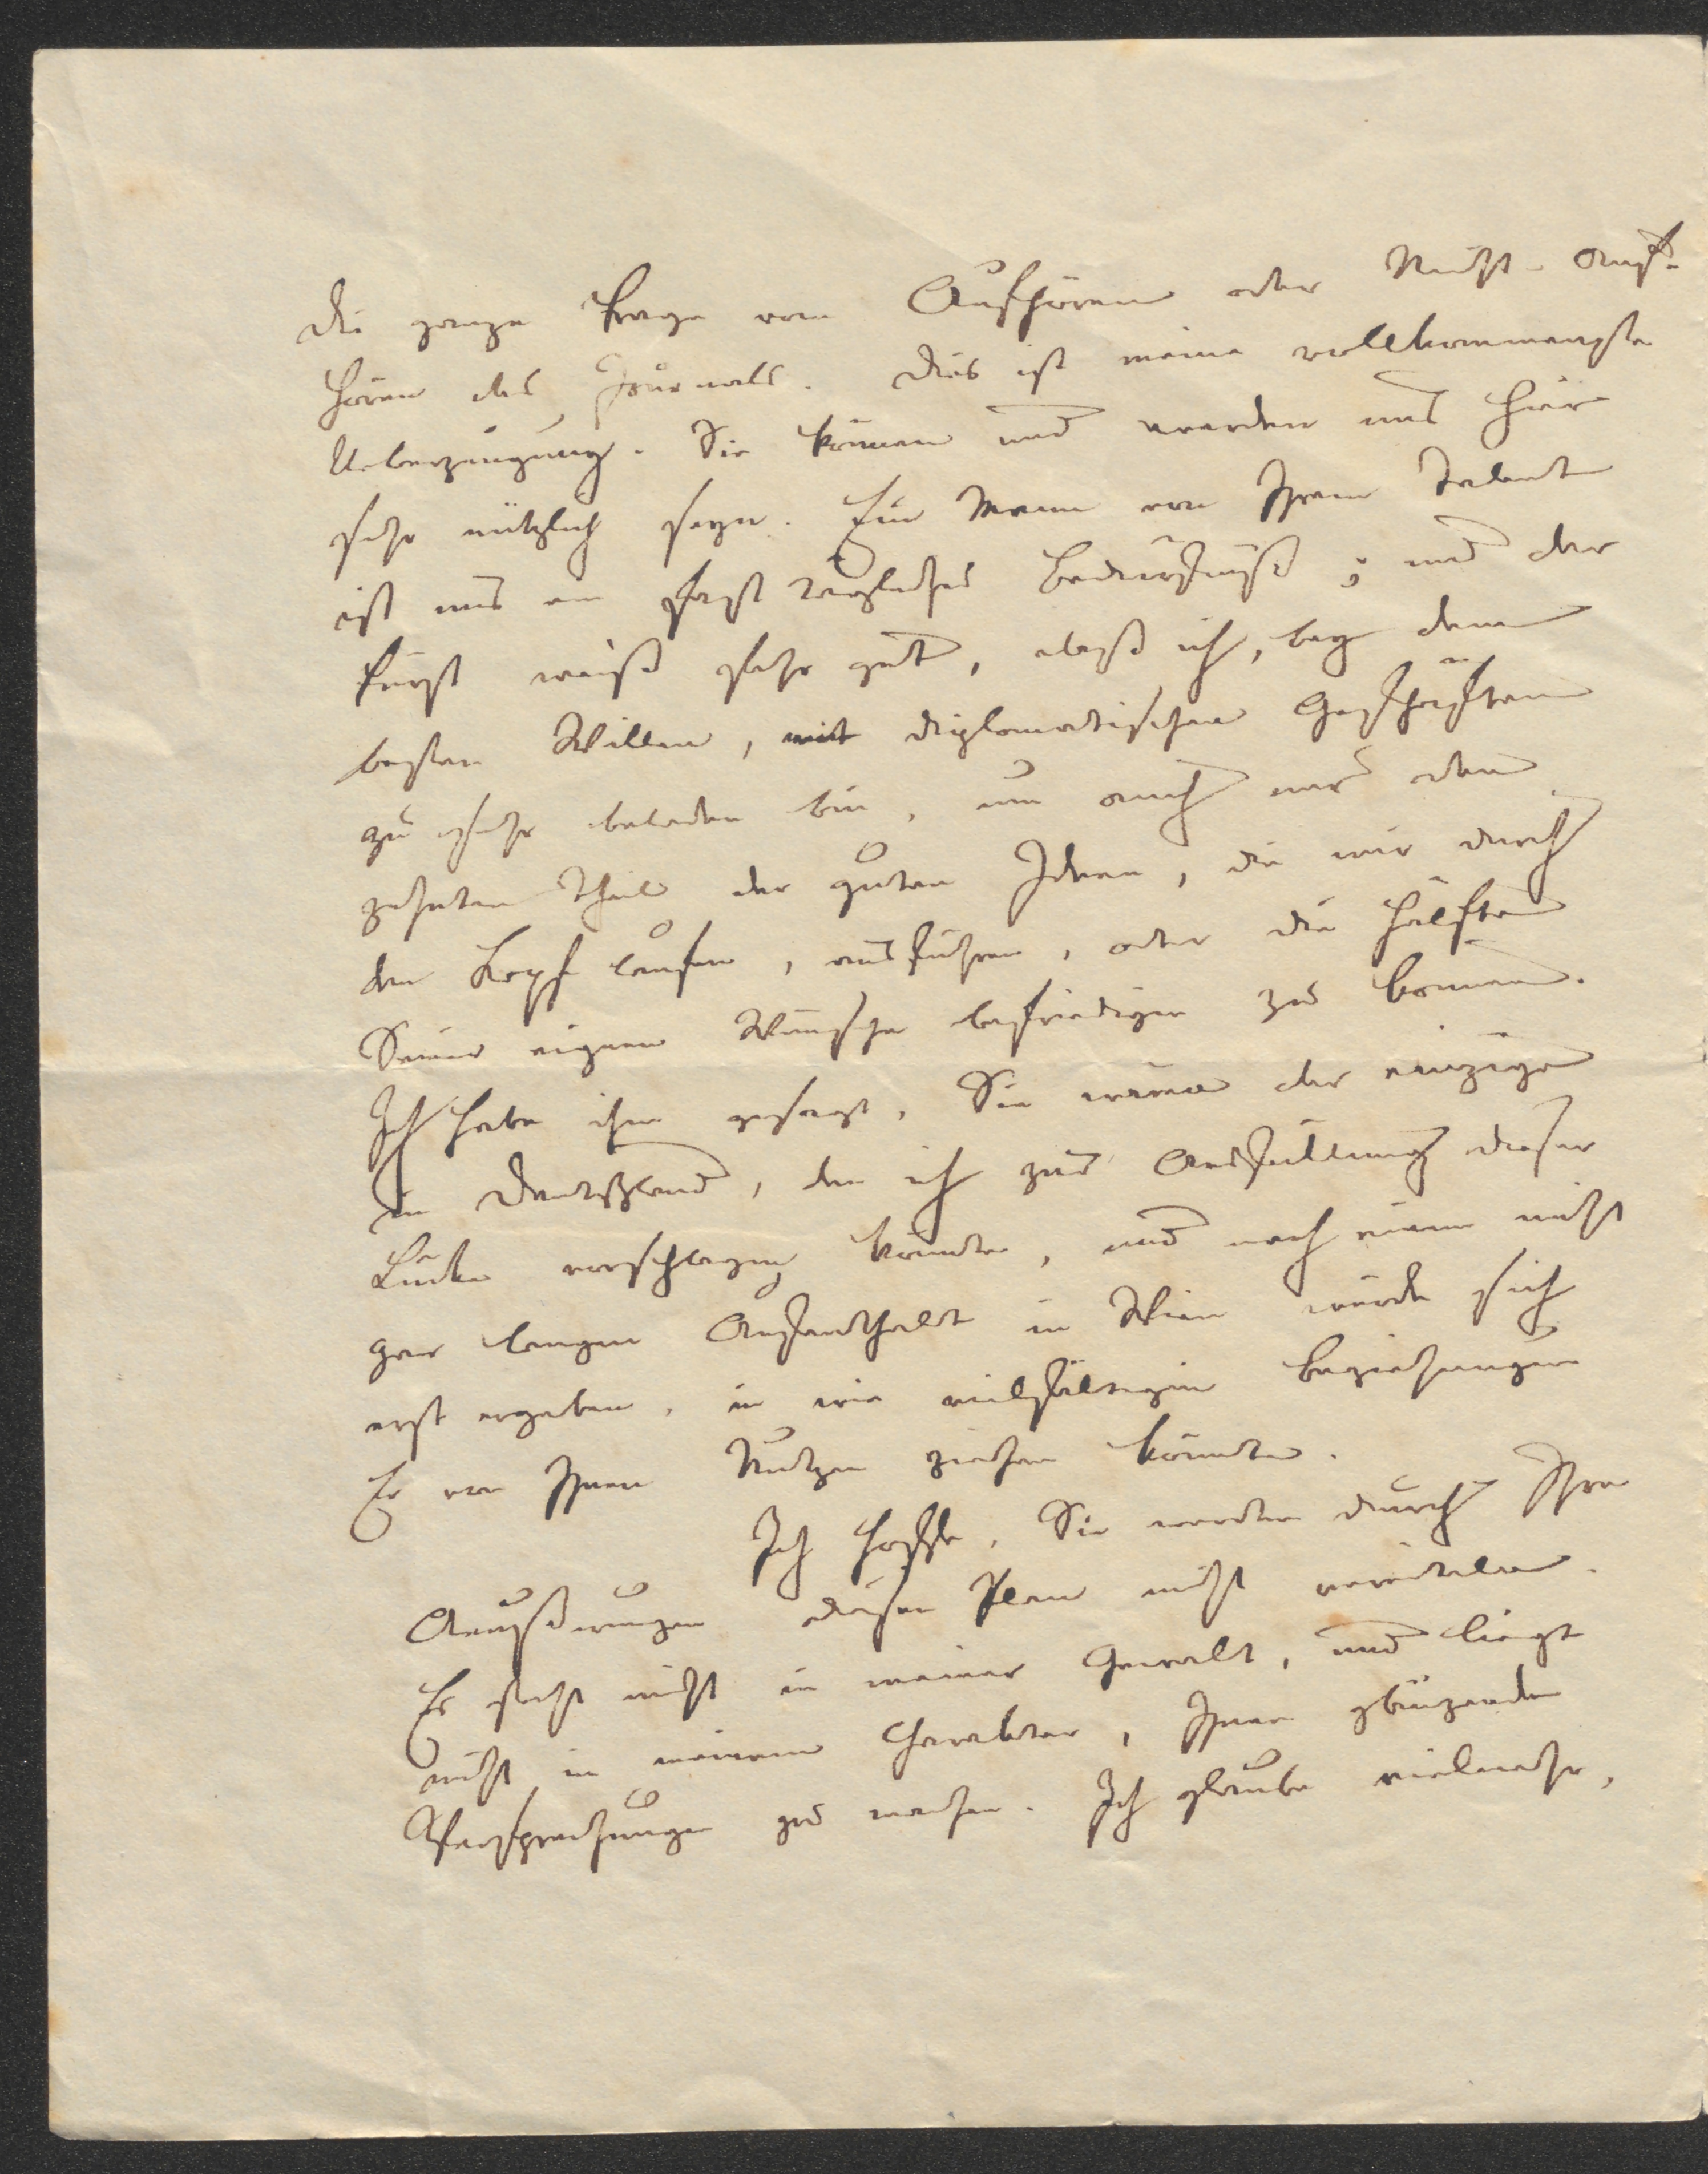 die ganze Frage vom Aufhören oder Nicht-Auf-
hören des Journals. Dies ist meine vollkommenste
Ueberzeugung. Sie können und werden uns hier
sehr nützlich seyn. Ein Mann von Ihrem Talent
ist uns ein fast tägliches Bedürfniß; und der
Fürst weiß sehr gut, daß ich, bey dem
besten Willen, mit diplomatischen Geschäften
zu sehr beladen bin, um auch nur den
zehnten Theil der guten Ideen, die mir durch
den Kopf laufen, ausführen, oder die Hälfte
Seiner eignen Wünsche befriedigen zu können.
Ich habe ihm gesagt, Sie wären der einzige
in Deutschland, den ich zur Ausfüllung dieser
Lücke vorschlagen könnte, und nach einem nicht
gar langen Aufenthalt in Wien würde sich
erst ergeben, in wie vielfältigen Beziehungen
Er von Ihnen Nutzen ziehen könnte.
Ich hoffe, Sie werden durch Ihre
Aeußerungen diesen Plan nicht vereiteln.
Es steht nicht in meiner Gewalt, und liegt
nicht in meinem Charakter, Ihnen glänzende
Versprechungen zu machen. Ich glaube vielmehr,